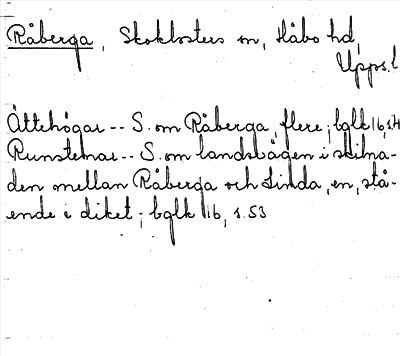 Råberga, Skoklosters sn, Håbo hd,
Upps.l
Ättehögar -- S. om Råberga, flere; bglk 16, s.4
Runstenar -- S. om landsvägen i skilna-
den mellan Råberga och Linda, en, stå-
ende i diket; bglk 16, s.53